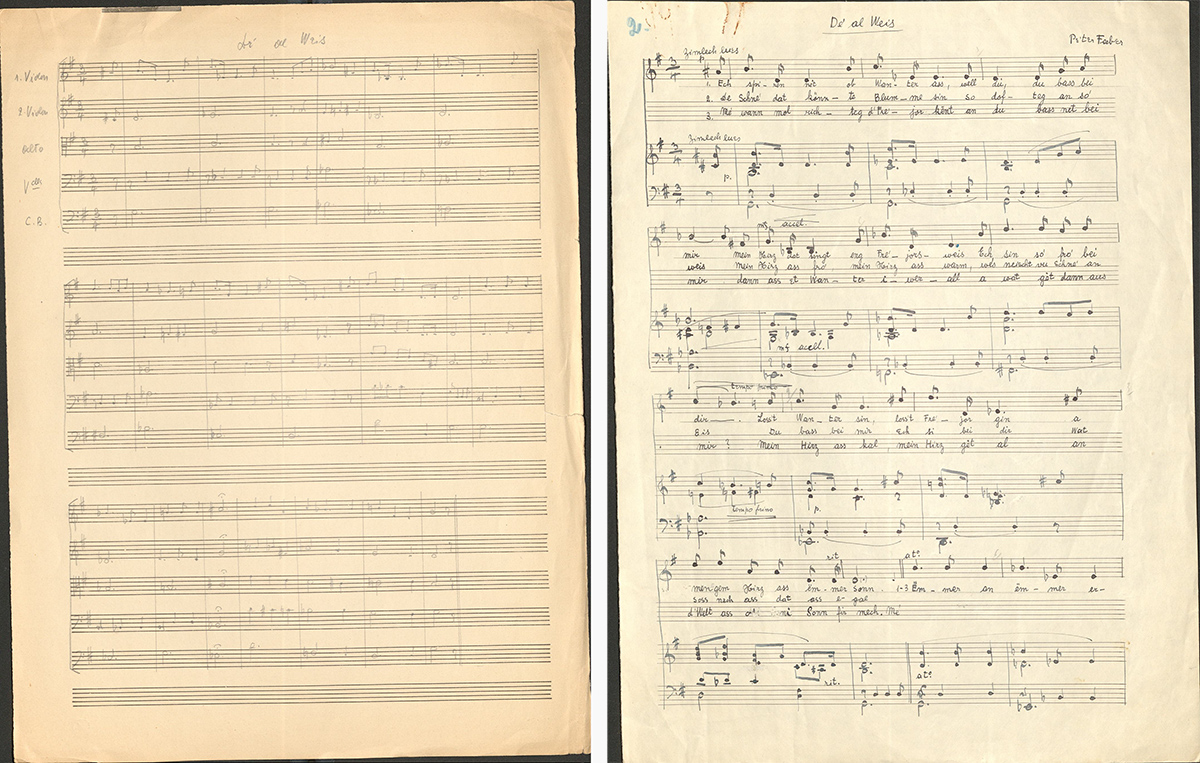 Dé al Weis
1. Violon
2. Violon
alto
C.B.
2.
Dé al Weis
Piter Faber
zimlech lues
1. Ech spi-ren nët ob Wan-ter ass, well du, du bass bei
2. De Schné dat könn-te Blum-me sin so def-teg an so'
3. Mé wann mol rich-teg d'Fre-jor könt an du bass net bei
zimlech lues
p.
mf accel.
mir mein Hirz dat singt eng Fre-jors-weis Ech sin so' he' bei
weis mein Hirz ass fro' mein Hirz ass warm, wéi Schné an
mir dann ass et Wan-ter i-wer-all a wat gët dann aus
mf accell.
tempo primo
dir. Loss't Wan-ter sin, loss't Fre-jor gin a
Eis Du bass bei mir Ech si bei dir Wat
mir? Mein Hirz ass kal, mein Hirz gët al an
tempo primo
p.
rit
at°
mengem Hirz ass ëm-mer Sonn. 1-3 Ëm-mer an ëm-mer er-
soss nach ass dat ass e-gal
d'Welt ass Sonn fir mech. Mé
rit.
at°